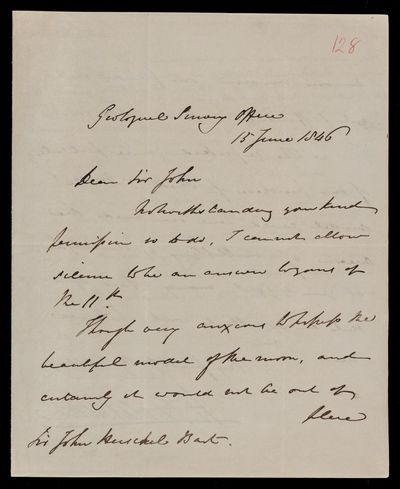 128
Geological Survey Office
15 June 1846
Dear Sir John
Notwithstanding your kind
permission so to do, I cannot allow
silence to be an answer to yours of
the 11th
Though very anxious to possess the
beautiful model of the moon, and
certainly it would not be out of
place
Sir John Herschel Bart.